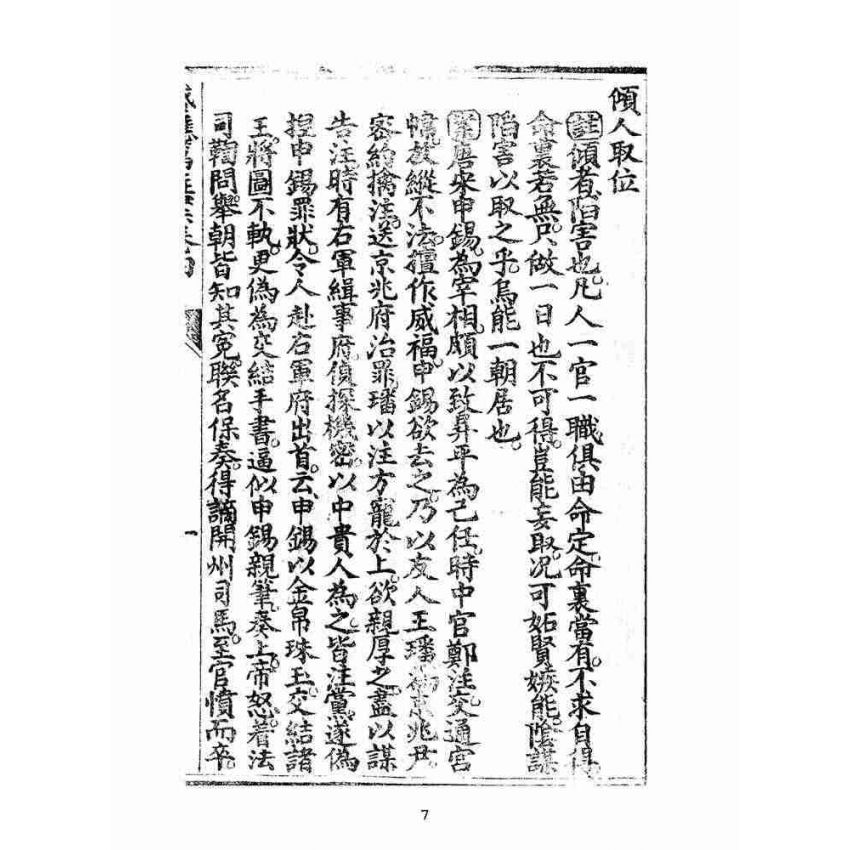 傾人取位
註傾者陷害也。凡人一官一職俱由命定。命裏當有。不求自得。
命裏若無。只做一日也不可得。豈能妄取。况可妬賢嫉能。陰謀
陷害以取之乎。烏能一朝居也。
案唐宋申錫。為宰相。頗以致昇平為己任。時中官鄭注。交通宮
放縱不法。擅作威福。申錫欲去之。乃以友人王璠 京兆尹。
密約擒注。送京兆府治罪。璠以注方寵於上。欲親厚之。盡以謀
告注。時有右軍緝事府。偵探機密。以中貴人為之。皆注黨。遂偽
捏申錫罪狀。令人赴右軍府出首。云申錫以金帛珠玉。交結諸
王。將圖不軌。更偽為交結手書。逼似申錫親筆。奏上。帝怒。着法
司鞫問。舉朝皆知其冤。聯名保奏。得謫開州司馬。至官憤而卒。
一
7